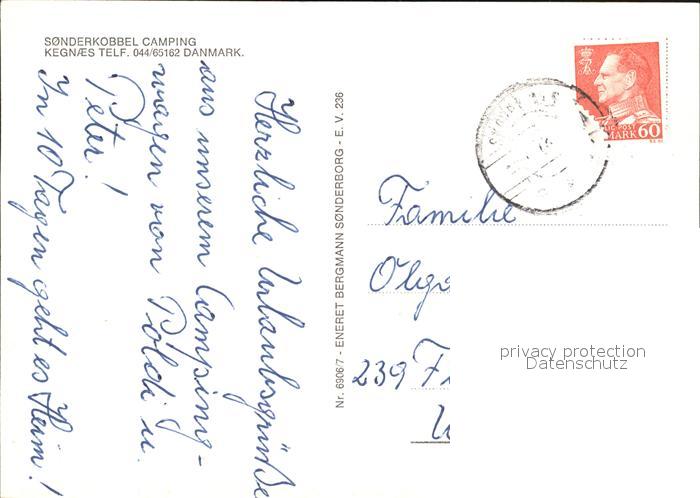 SØNDERKOBBEL CAMPING
KEGNÆS TELF. 044/65162 DANMARK.
Herzliche Urlaubsgrüße
aus unserem Camping-
wagen von Poldi u.
Peter!
In 10 Tagen geht es Heim!
Nr. 6906/7 - ENERET BERGMANN SØNDERBORG - E. V. 236
MARK 60
Familie
Olga
239 F
privacy protection
Datenschutz